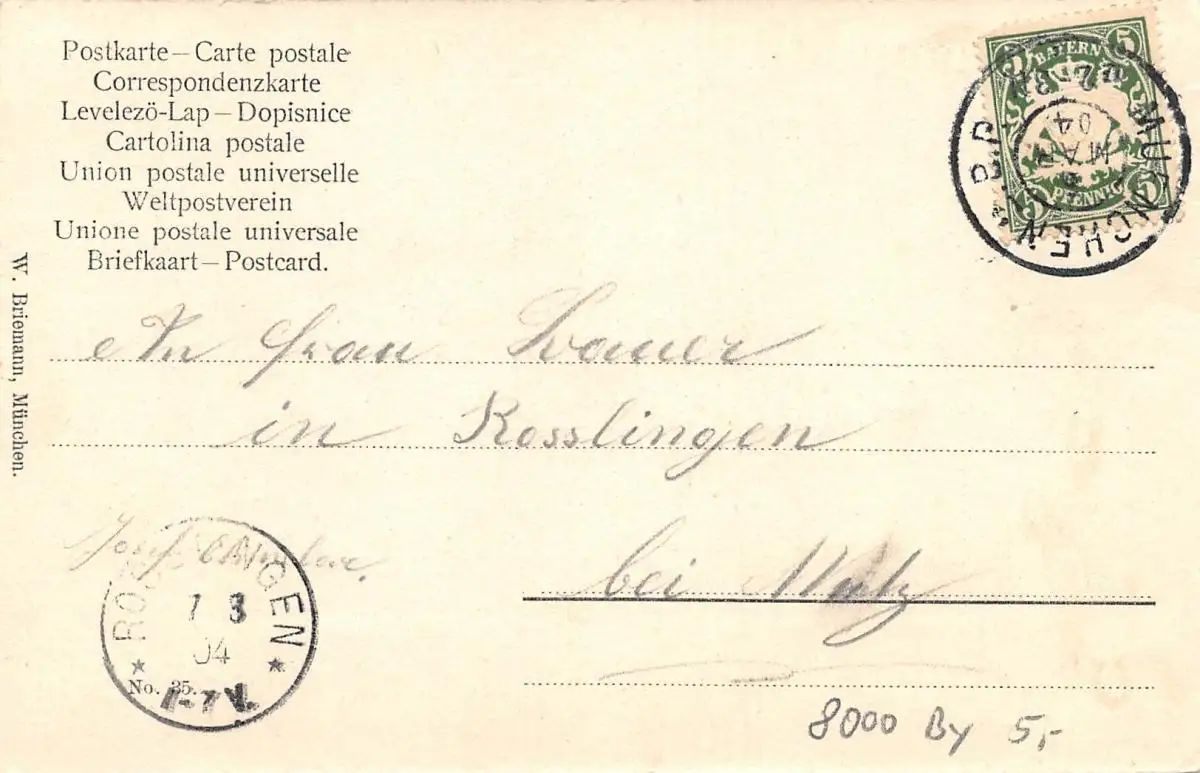 Postkarte – Carte postale
Correspondenzkarte
Levelezö-Lap – Dopisnice
Cartolina postale
Union postale universelle
Weltpostverein
Unione postale universale
Briefkaart – Postcard.
5 BAYERN 5
5 PFENNIG 5
MUENCHEN B.P.
MAR
04
W. Briemann, München.
An Frau
in Rosslingen
bei Metz
Josef
7 3
04
No. 35.
8000 By 5,-